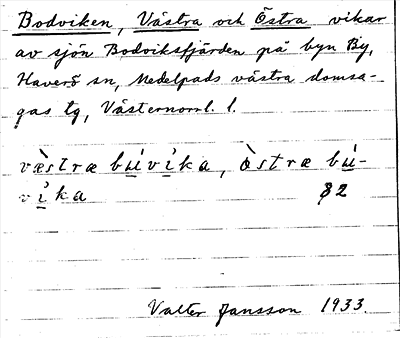 Bodviken, Västra och Östra vikar
av sjön Bodviksfjärden på byn By,
Haverö sn, Medelpads västra domsa-
gas tg, Västernorrl. l.
væ̀stræ bú̱vỉ̱ka, ö̀stræ bú̱-
vỉ̱ka
Valter Jansson 1933.